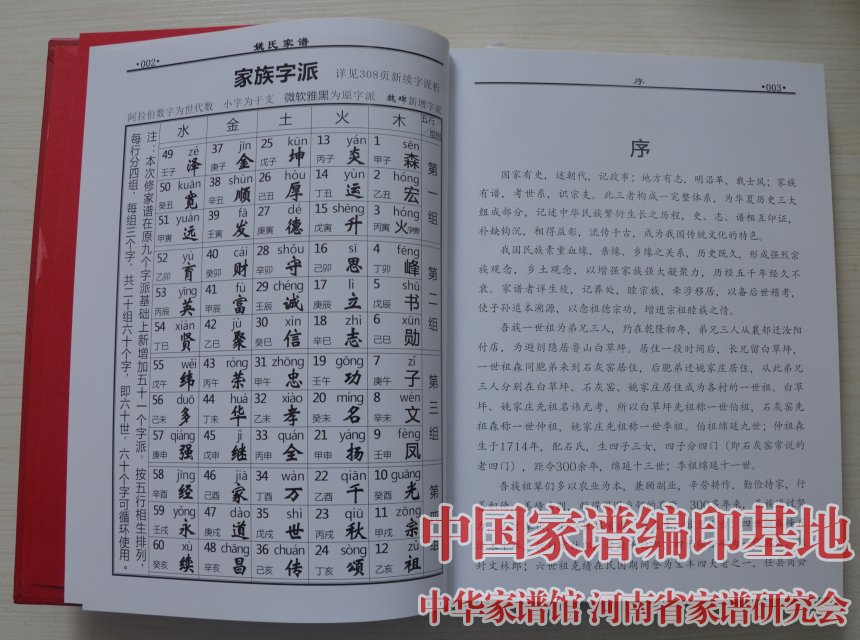 •002•
姚氏家谱
家族字派 详见308页新续字派析
阿拉伯数字为世代数 小字为干支 微软雅黑为原字派 新增字派
注：本次修家谱在原九个字派基础上新增加五十一个字派。按五行相生排列，
每行分四组，每组三个字，共二十组六十个字，即六十世。六十个字可循环使用。
水 金 土 火 木 五行 组别
49 zé 壬子 泽 37 jīn 庚子 金 25 kūn 戊子 坤 13 yán 丙子 炎 1 sēn 甲子 森 第一组
50 kuān 癸丑 宽 38 shùn 辛丑 顺 26 hòu 己丑 厚 14 yùn 丁丑 运 2 hóng 乙丑 宏
51 yuǎn 甲寅 远 39 fā 壬寅 发 27 dé 庚寅 德 15 shēng 戊寅 升 3 hóng 丙寅 火字旁
52 yù 乙卯 育 40 cái 癸卯 财 28 shǒu 辛卯 守 16 sī 己卯 思 4 fēng 丁卯 峰 第二组
53 yīng 丙辰 英 41 fù 甲辰 富 29 chéng 壬辰 诚 17 lì 庚辰 立 5 shū 戊辰 书
54 xián 丁巳 贤 42 jù 乙巳 聚 30 xìn 癸巳 信 18 zhì 辛巳 志 6 xūn 己巳 勋
55 wěi 戊午 纬 43 róng 丙午 荣 31 zhōng 甲午 忠 19 gōng 壬午 功 7 zǐ 庚午 子 第三组
56 duō 己未 多 44 huá 丁未 华 32 xiào 乙未 孝 20 míng 癸未 名 8 wén 辛未 文
57 qiáng 庚申 强 45 jì 戊申 继 33 quán 丙申 全 21 yáng 甲申 扬 9 fèng 壬申 凤
58 jīng 辛酉 经 46 jiā 己酉 家 34 wàn 丁酉 万 22 qiān 乙酉 千 10 guāng 癸酉 光
59 yǒng 壬戌 永 47 dào 庚戌 道 35 shì 戊戌 世 23 qiū 丙戌 秋 11 zōng 甲戌 宗
60 xù 癸亥 续 48 chāng 辛亥 昌 36 chuán 己亥 传 24 sòng 丁亥 颂 12 zǔ 乙亥 祖
序
•003•
序
国家有史，述朝代，记政事；地方有志，明沿革，载士风；家族
有谱，考世系，识宗支。此三者构成一完整体系，为华夏历史三大
组成部分，记述中华民族繁衍生长之历程，史、志、谱相互印证，
补缺钩沉，相得益彰，流传千古，成为我国传统文化的特色。
我国民族素重血缘、亲缘、乡缘之关系，历史既久，形成强烈宗
族观念，乡土观念，以增强家族强大凝聚力，历经五千年经久不
衰。家谱者详生殁，记葬处，睦宗族，牵涉移居，以备后世稽考，
使子孙追本溯源，以念祖德宗功，增进宗祖睦族之情。
吾族一世祖为弟兄三人，约在乾隆初年，弟兄三人从襄郏迁汝阳
付店，为避刘隐居鲁山白草坪。居住一段时间后，长兄留白草坪，
一世祖森同胞弟来到石灰窑居住，后胞弟迁姚家庄居住，从此弟兄
三人分别在白草坪、石灰窑、姚家庄居住成为各村的一世祖。白草
坪、姚家庄先祖名讳无考，所以白草坪先祖称一世伯祖，石灰窑先
祖森称一世仲祖，姚家庄先祖称一世季祖。伯祖绵延九世；仲祖森
生于1714年，配石氏，生四子三女，四子分四门（即石灰窑常说的
老四门），距今300余年，绵延十三世；季祖绵延十一世。
吾族祖辈们多以农业为本，兼顾副业，辛劳耕作，勤俭持家，行
中国家谱编印基地
中华家谱馆 河南省家谱研究会